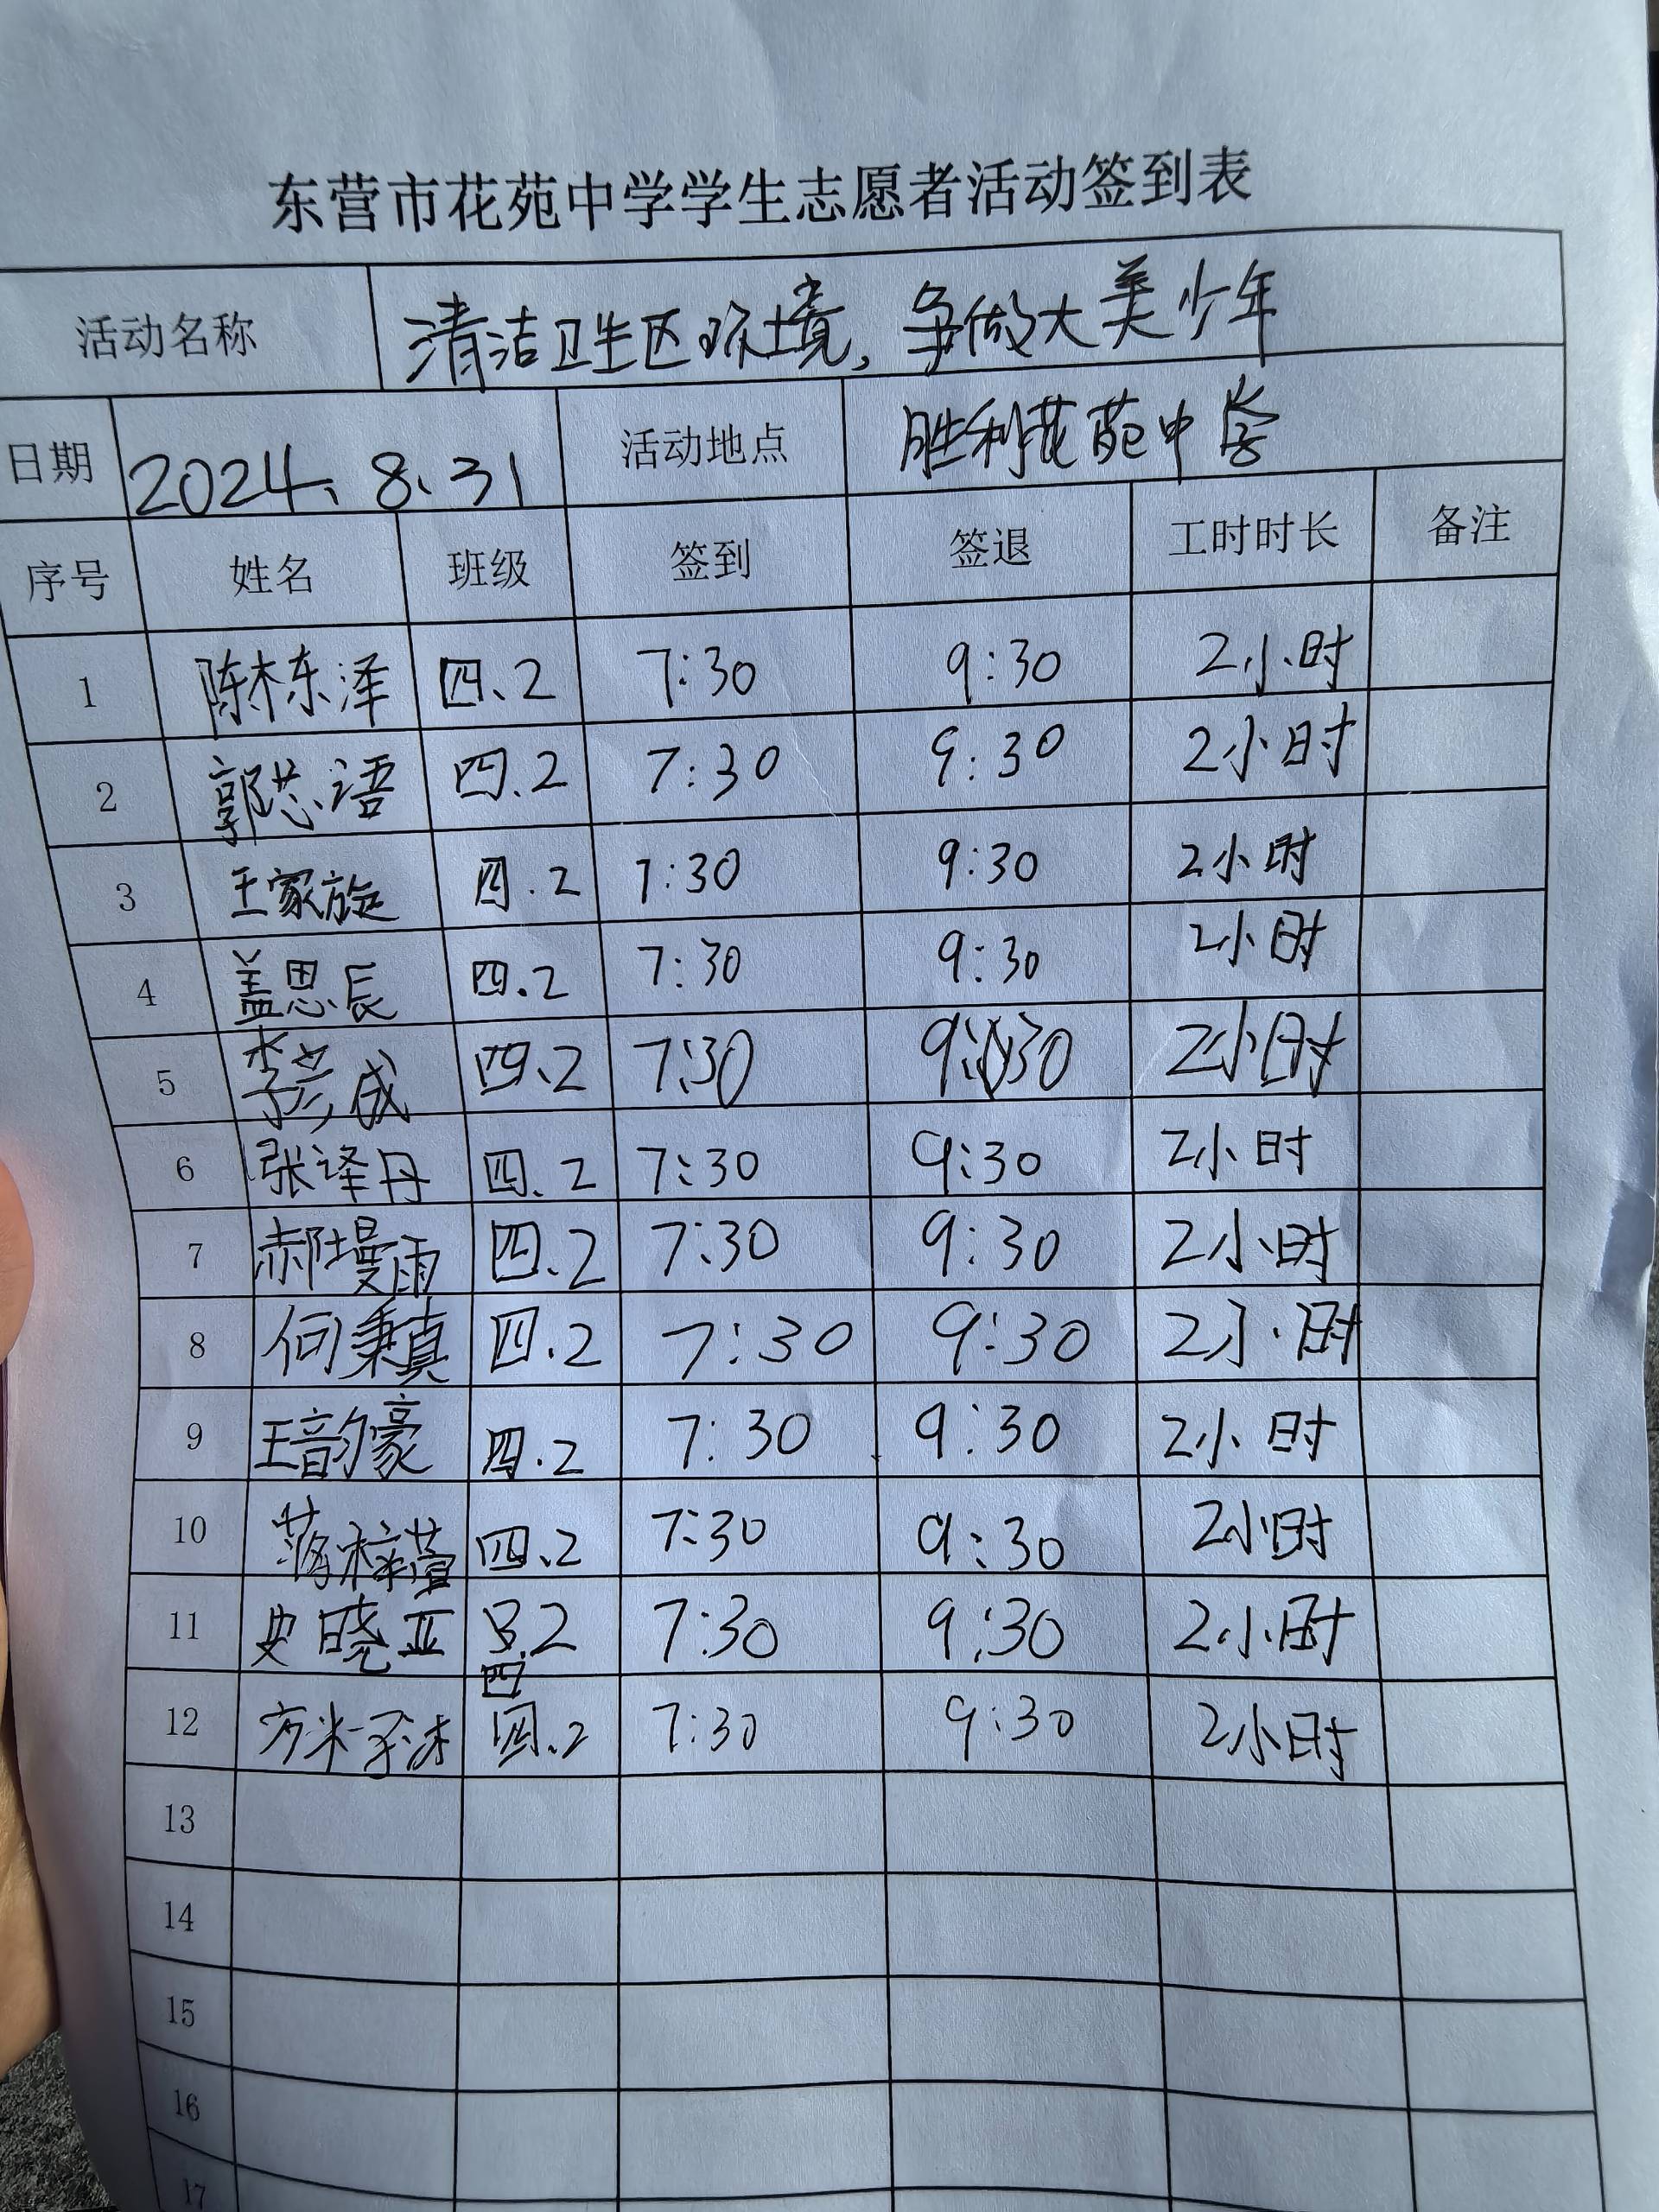 东营市花苑中学学生志愿者活动签到表
活动名称 清洁卫生区环境，争做大美少年
日期 2024、8、31 活动地点 胜利花苑中学
序号 姓名 班级 签到 签退 工时时长 备注
1 陈栋泽 四、2 7:30 9:30 2小时
2 郭芯语 四.2 7:30 9:30 2小时
3 王家旋 四.2 7:30 9:30 2小时
4 盖思辰 四.2 7:30 9:30 2小时
5 李芸成 四、2 7:30 9:30 2小时
6 张译丹 四、2 7:30 9:30 2小时
7 郝墁雨 四.2 7:30 9:30 2小时
8 何秉真 四.2 7:30 9:30 2小时
9 王韵豪 四.2 7:30 9:30 2小时
10 梓萱 四.2 7:30 9:30 2小时
11 史晓亚 四.2 7:30 9:30 2小时
12 四.2 7:30 9:30 2小时
13
14
15
16
17